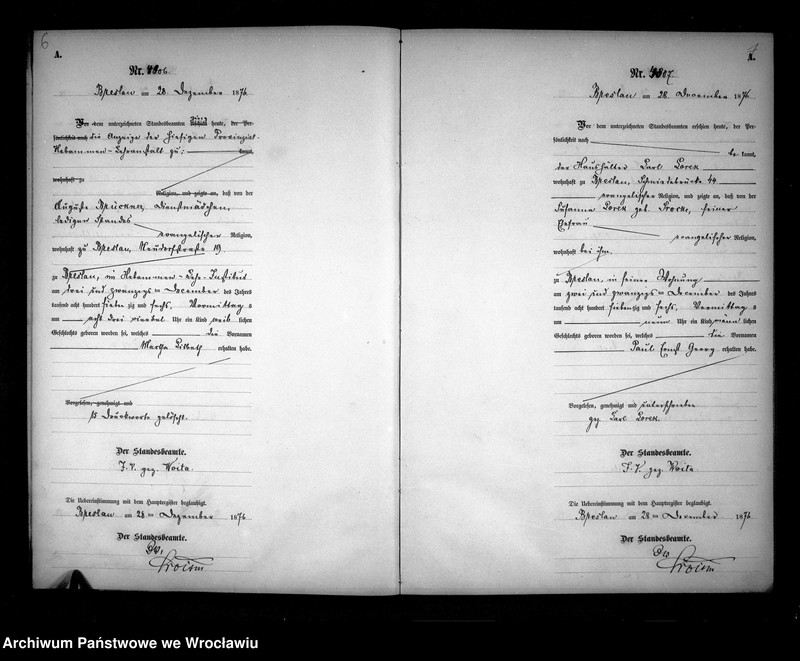 6
A.
Nr. 4806
Breslau am 28 Dezember 1876
Vor dem unterzeichneten Standesbeamten erschien heute, der Per-
sönlichkeit nach die Anzeige der hiesigen Provinzial-
Hebammen-Lehranstalt zu: kannt,
wohnhaft zu
Religion, und zeigte an, daß von der
Auguste Brückner, Dienstmädchen,
ledigen Standes
evangelischer Religion,
wohnhaft zu Breslau, Neudorfstraße 19
zu Breslau, im Hebammen-Lehr-Institut
am drei und zwanzigsten December des Jahres
tausend acht hundert siebenzig und sechs, Vormittags
um acht drei viertel Uhr ein Kind weiblichen
Geschlechts geboren worden sei, welches die Vornamen
Martha Lisbeth erhalten habe.
Vorgelesen, genehmigt und
15 Druckworte gelöscht.
Der Standesbeamte.
J. V. gez. Woita.
Die Uebereinstimmung mit dem Hauptregister beglaubigt.
Breslau am 28ten Dezember 1876
Der Standesbeamte.
A.
Nr. 4807
Breslau am 28. December 1876
Vor dem unterzeichneten Standesbeamten erschien heute, der Per-
sönlichkeit nach
bekannt,
der Haushälter Carl Lorek
wohnhaft zu Breslau, Schmiedebrücke 44
evangelischer Religion, und zeigte an, daß von der
Susanna Lorek geb. Brock, seiner
Ehefrau
evangelischer Religion,
wohnhaft bei ihm
zu Breslau in seiner Wohnung
am zwei und zwanzigsten December des Jahres
tausend acht hundert siebenzig und sechs, Vormittags
um neun Uhr ein Kind männlichen
Geschlechts geboren worden sei, welches die Vornamen
Paul Ernst Georg erhalten habe.
Vorgelesen, genehmigt und unterschrieben
gez. Carl Lorek.
Der Standesbeamte.
J. V. gez. Woita
Die Uebereinstimmung mit dem Hauptregister beglaubigt.
Breslau am 28ten December 1876
Der Standesbeamte.
Archiwum Państwowe we Wrocławiu